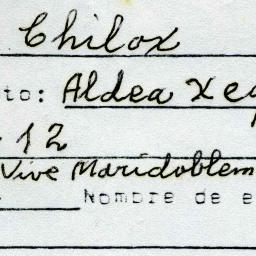 Chilox
to: Aldea Xe
12
Vive Maridoblem
Nombre de e